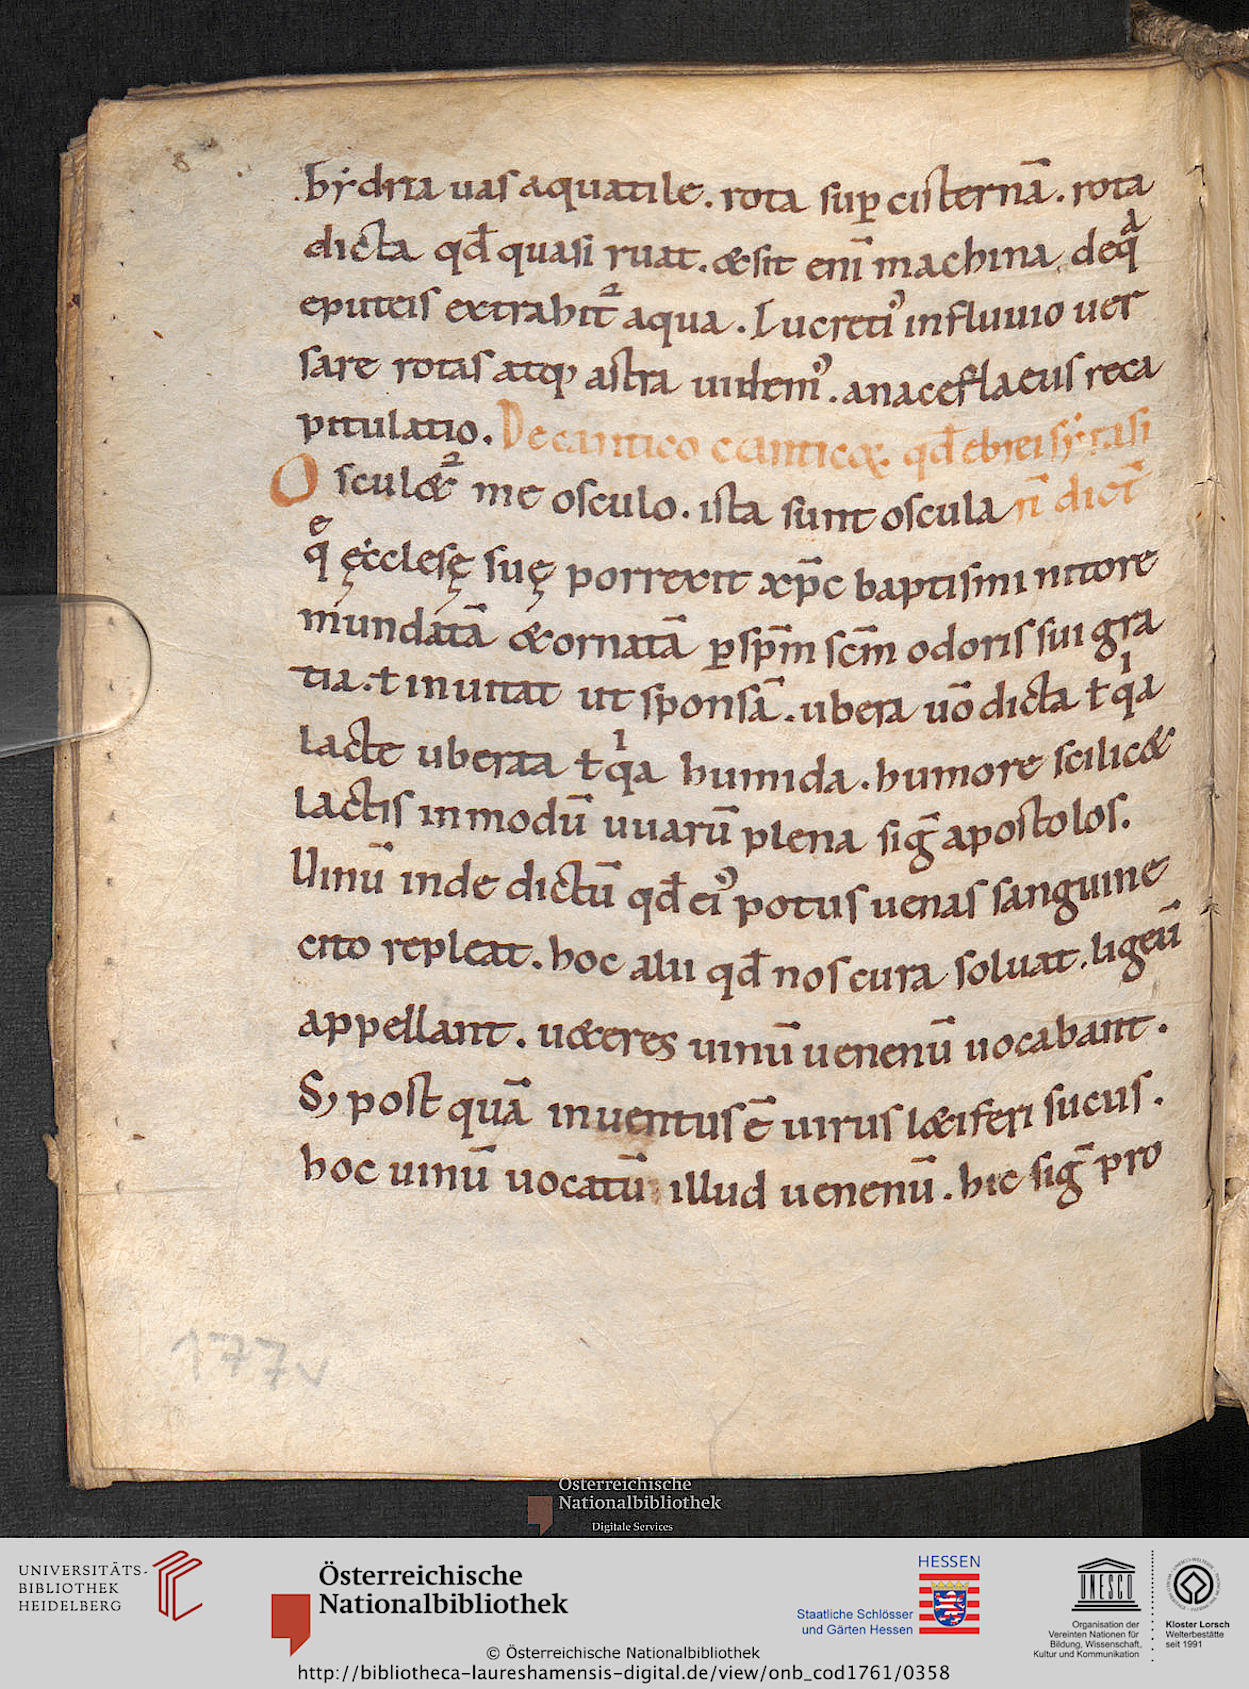 hẏdria uas aquatile. rota sup̲ cisternā. rota
dicta qđ quasi ruat. &sit eni̅ machina deq̅ͣ
eputeis extrahit̅² aqua. Lucreti᾽ influuio uer
sare rotas atq; astra uidem᾽. anaceflaeus reca
pitulatio. De cantico canticoꝝ. qđ ebrei sẏrasi
Osculet² me osculo. ista sunt oscula ri̅ dict̅
q̅ͤ ęcclesę suę porrexit xp̅c baptismi nitore
mundatā &ornatā ꝑ sp̅m sc̅m odoris sui gra
tia. ł inuitat ut sponsā. ubera uō dicta ł qⁱa
lacte uberta ł qⁱa humida. humore scilic&
lactis inmodū uuarū plena sig̅ apostolos.
Uinū inde dictū qđ ei᾽ potus uenas sanguine
cito repleat. hoc alii qđ nos cura soluat. ligeū
appellant. u&eres uinū uenenū uocabant.
S; post quā inuentus ē uirus l&iferi sucus.
hoc uinū uocatū illud uenenū. hic sig̅ pro
177v
Österreichische
Nationalbibliothek
Digitale Services
UNIVERSITÄTS-
BIBLIOTHEK
HEIDELBERG
Österreichische
Nationalbibliothek
HESSEN
Staatliche Schlösser
und Gärten Hessen
UNESCO
Organisation der
Vereinten Nationen für
Bildung, Wissenschaft,
Kultur und Kommunikation
Kloster Lorsch
Welterbestätte
seit 1991
© Österreichische Nationalbibliothek
http://bibliotheca-laureshamensis-digital.de/view/onb_cod1761/0358